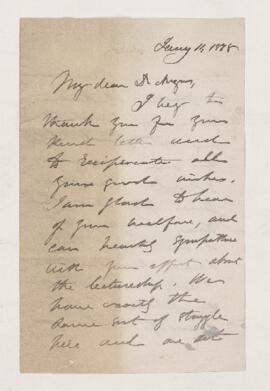 Jany 11, 1878
My dear Dr Angus,
I beg to
thank you for your
kind letter and
to reciprocate all
your good wishes.
I am glad to hear
of your welfare, and
can heartily sympathise
with your effort about
the lectureship. We
have exactly the
same sort of struggle
here and are at